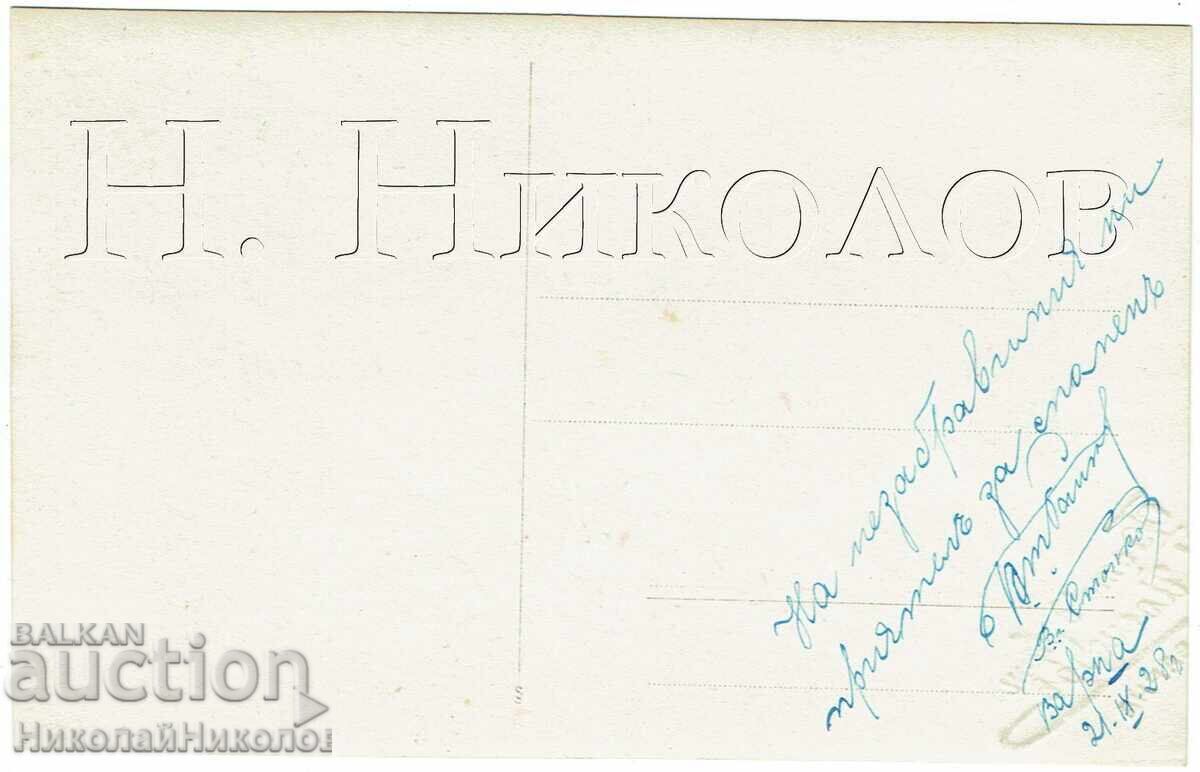 Н. Николов
На незабравимия ми
приятель за спомень
Варна
21.IX.28г.
BALKAN
auction
НиколайНиколов